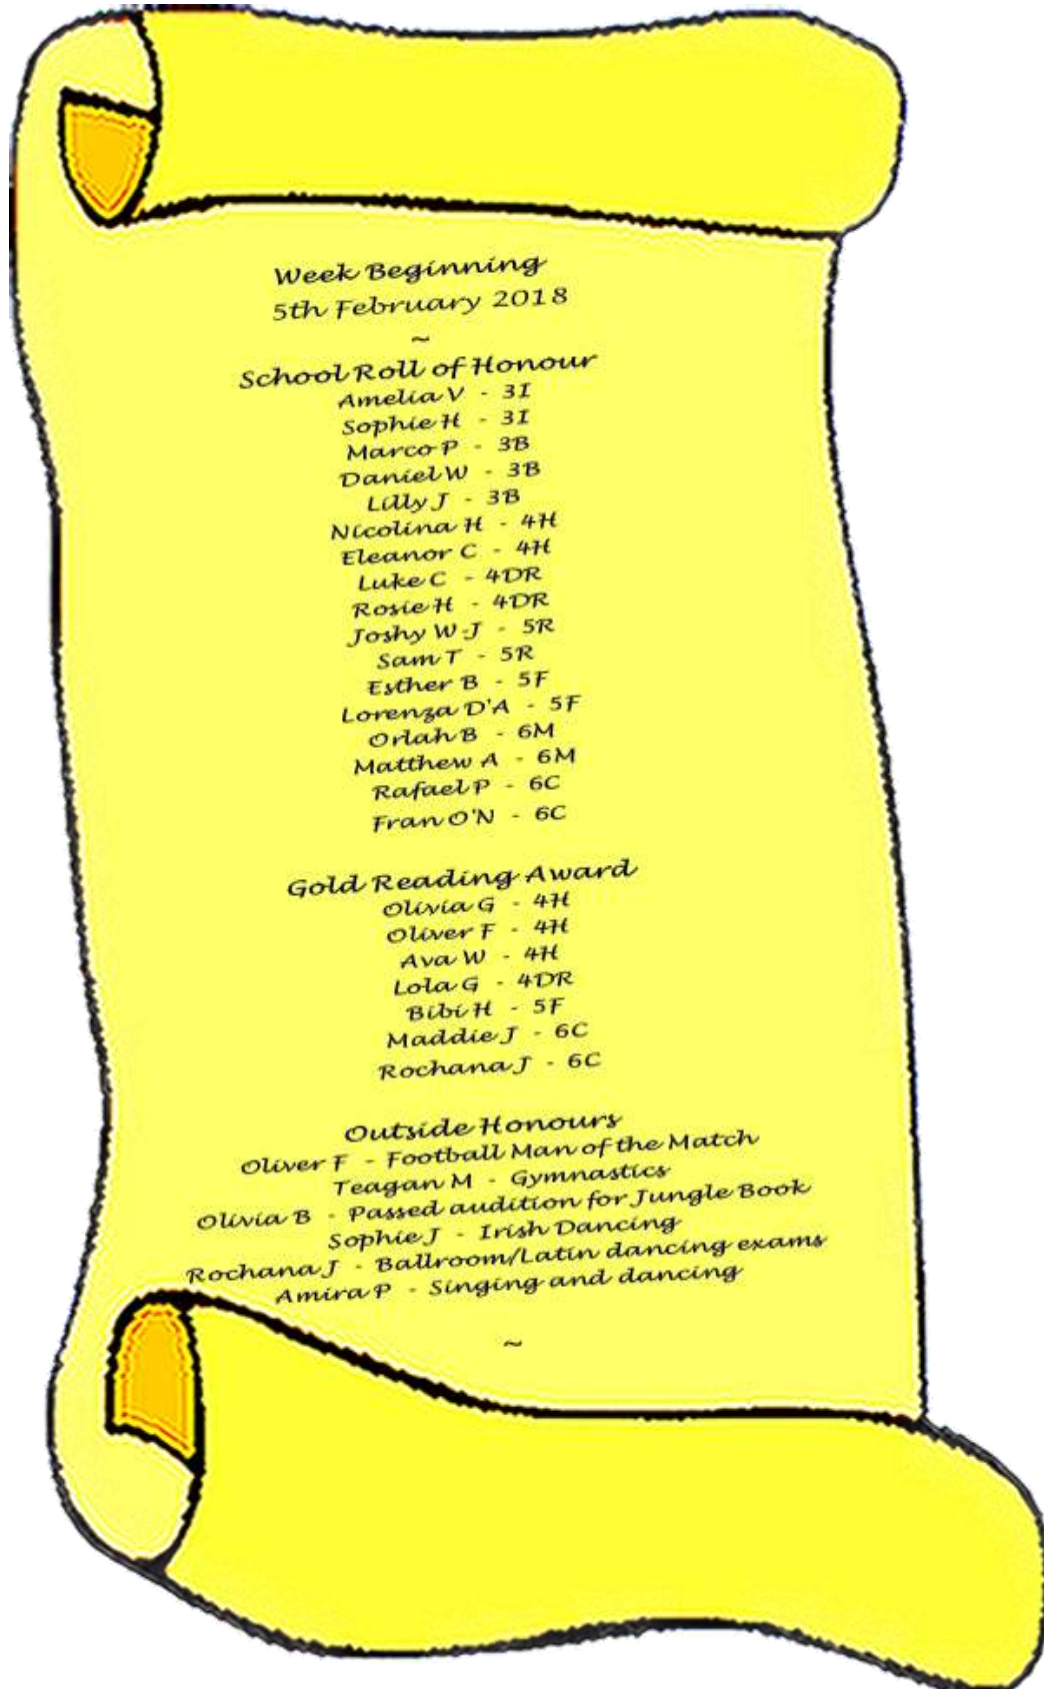 Week Beginning
5th February 2018
~
School Roll of Honour
Amelia V - 3I
Sophie H - 3I
Marco P - 3B
Daniel W - 3B
Lilly J - 3B
Nicolina H - 4H
Eleanor C - 4H
Luke C - 4DR
Rosie H - 4DR
Joshy W-J - 5R
Sam T - 5R
Esther B - 5F
Lorenza D'A - 5F
Orlah B - 6M
Matthew A - 6M
Rafael P - 6C
Fran O'N - 6C
Gold Reading Award
Olivia G - 4H
Oliver F - 4H
Ava W - 4H
Lola G - 4DR
Bibi H - 5F
Maddie J - 6C
Rochana J - 6C
Outside Honours
Oliver F - Football Man of the Match
Teagan M - Gymnastics
Olivia B - Passed audition for Jungle Book
Sophie J - Irish Dancing
Rochana J - Ballroom/Latin dancing exams
Amira P - Singing and dancing
~